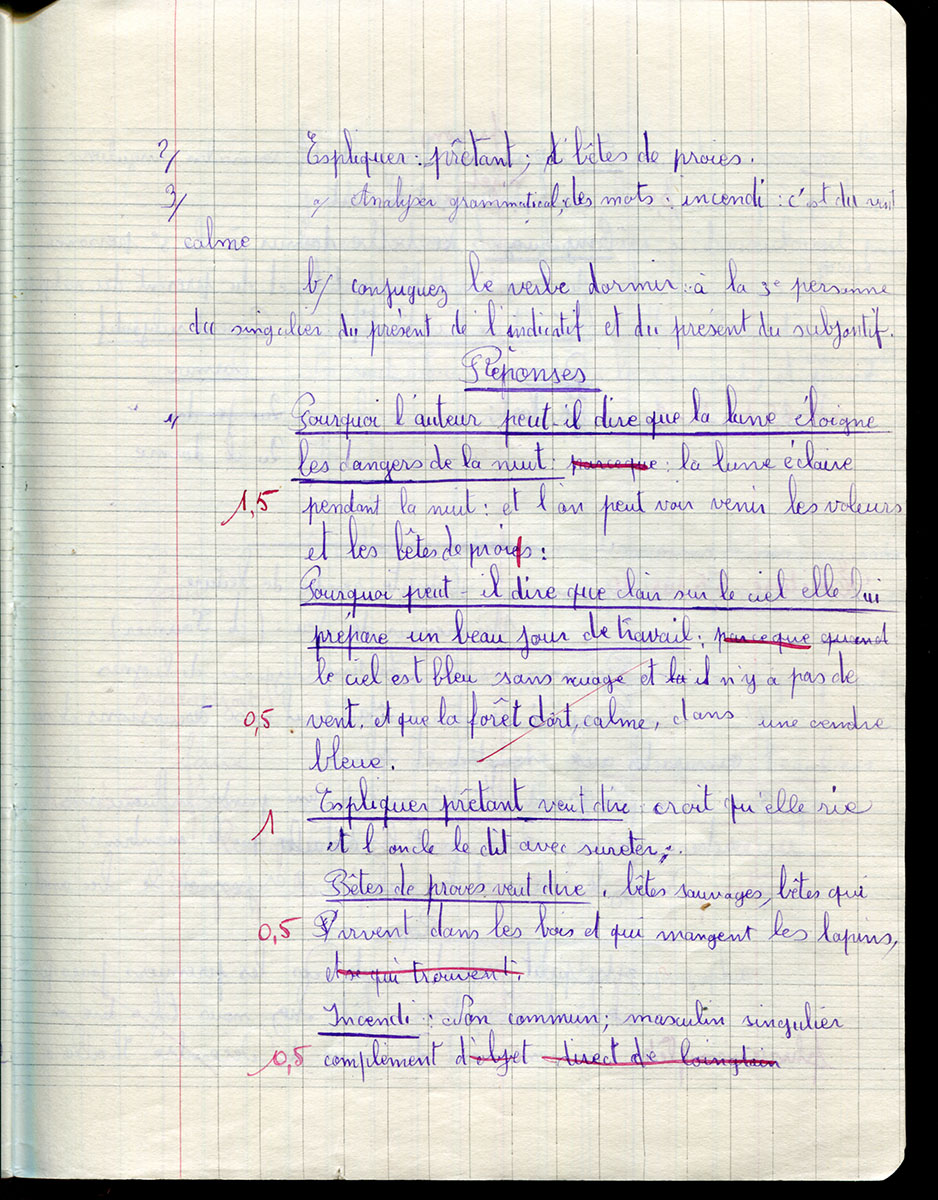 2/ Expliquer : prêtant ; d'bêtes de proies.
3/ a/ Analyser grammatical, des mots : incendi : c'est du
calme
b/ conjuguez le verbe dormir : à la 3e personne
du singulier du présent de l'indicatif et du présent du subjontif.
Réponses
1/ Pourquoi l'auteur peut-il dire que la lune éloigne
les dangers de la nuit : parceque : la lune éclaire
1,5 pendant la nuit : et l'on peut voir venir les voleurs
et les bêtes de proies :
Pourquoi peut-il dire que clair sur le ciel elle lui
prépare un beau jour de travail : parceque quand
le ciel est bleu sans nuage et la il n'y a pas de
0,5 vent, et que la forêt dort, calme, dans une cendre
bleue.
Expliquer prêtant veut dire : croit qu'elle rie
1 et l'oncle le dit avec sureter ;.
Bêtes de proves veut dire . bêtes sauvages, bêtes qui
0,5 Virvent dans les bois et qui mangent les lapins,
et qui trouvent.
Incendi : Nom commun ; masculin singulier
0,5 complément d'objet direct de loingtain